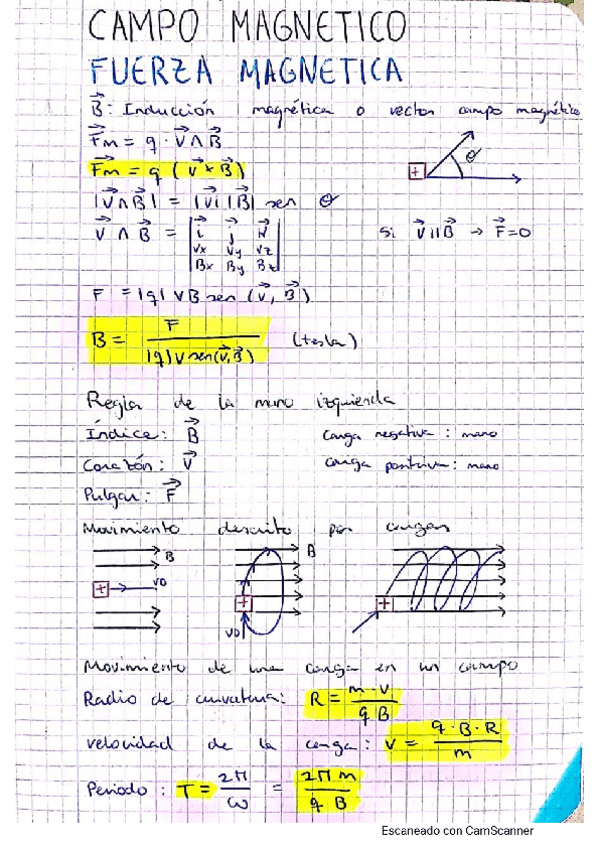 CAMPO MAGNETICO
FUERZA MAGNETICA
B⃗: Inducción magnética o vector campo magnético
F⃗m = q · V⃗ ∧ B⃗
F⃗m = q ( v⃗ × B⃗ )
+ θ
|V⃗ ∧ B⃗| = |V⃗| |B⃗| sen θ
V⃗ ∧ B⃗ = | i⃗ j⃗ k⃗ | Si V⃗ || B⃗ → F⃗=0
| Vx Vy Vz |
| Bx By Bz |
F = |q| V B sen (V⃗, B⃗)
B = F / |q| V sen(V⃗, B⃗) (tesla)
Regla de la mano izquierda
Índice: B⃗ carga negativa : mano
Corazón: V⃗ carga positiva: mano
Pulgar: F⃗
Movimiento descrito por cargas
B B
+ VO + +
VO
Movimiento de una carga en un campo
Radio de curvatura: R = m · V / q B
velocidad de la carga: V = q · B · R / m
Periodo : T = 2π / ω = 2π m / q B
Escaneado con CamScanner